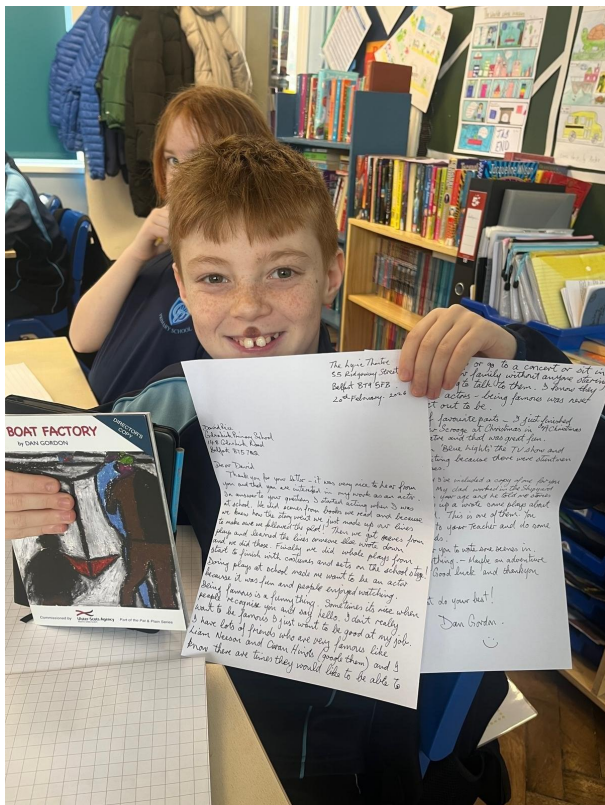 BOAT FACTORY
by DAN GORDON
DIRECTOR'S
COPY
Commissioned by:
Ulster Scots Agency
Part of the Pat & Plain Series
PRIMARY SCHOOL
Jacqueline Wilson
THE
END
The Lyric Theatre
55 Ridgeway Street
Belfast BT9 5FB
20th February
Primary School
Road
Belfast
Dear David
Thank you for your letter – it was very nice to hear from
you and that you are interested in my work as an actor.
In answer to your question, I started acting when I was
at school. We did scenes from books we read and because
we knew how the story went we just made up our lines
to make sure we followed the plot. Then we got scenes from
plays and learned the lines someone else wrote down
and we did those. Finally we did whole plays from
start to finish with costumes and sets on the school stage!
Doing plays at school made me want to be an actor
because it was fun and people enjoyed watching.
Being famous is a funny thing. Sometimes its nice when
people recognise you and say hello. I don't really
want to be famous I just want to be good at my job.
I have lots of friends who are very famous like
Liam Neeson and Ciaran Hinds (google them) and I
know there are times they would like to be able to
or go to a concert or sit in
family without anyone
to talk to them. I know they
actors – being famous was never
set out to be.
favourite parts – I just finished
Scrooge at Christmas in "A Christmas
and that was great fun.
Blue Lights the TV show and
because there were stuntmen
I've included a copy of one for you
My dad worked in the Shipyard
your age and he told me stories
up I wrote some plays about
This is one of them.
to your Teacher and do some
you to write some scenes in.
thing – Maybe an adventure.
Good luck and thankyou
do your best!
Dan Gordon